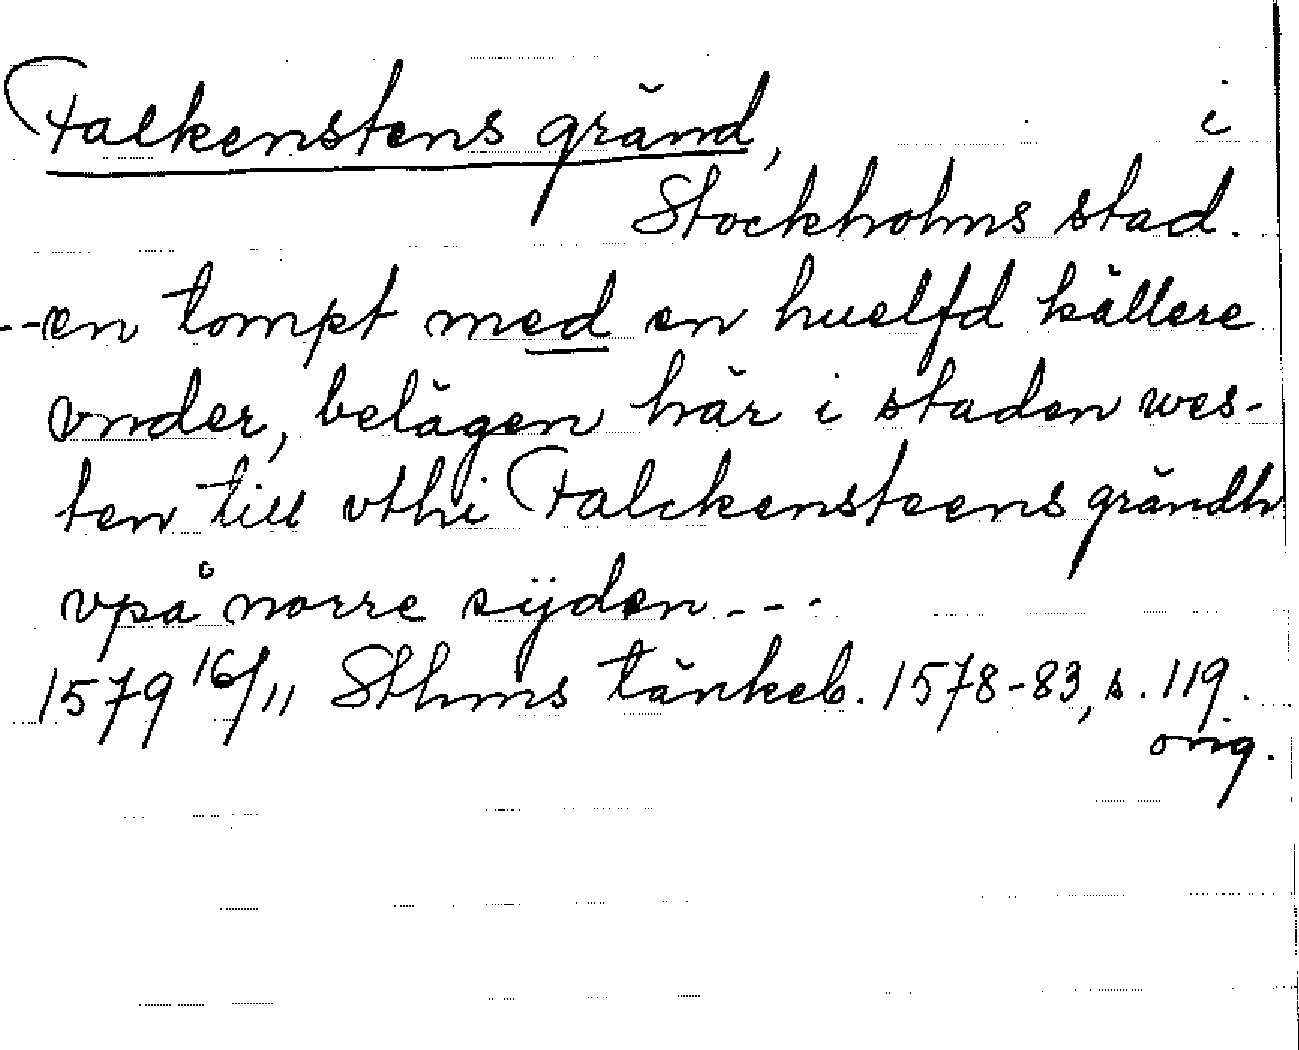 Falkenstens gränd, i
Stockholms stad.
--en tompt med en huelfd källere
vnder, belägen här i staden wes-
ten till vthi Falckensteens grändh
vpå norre sijden---
1579 16/11 Sthms tänkeb. 1578-83, s. 119.
orig.